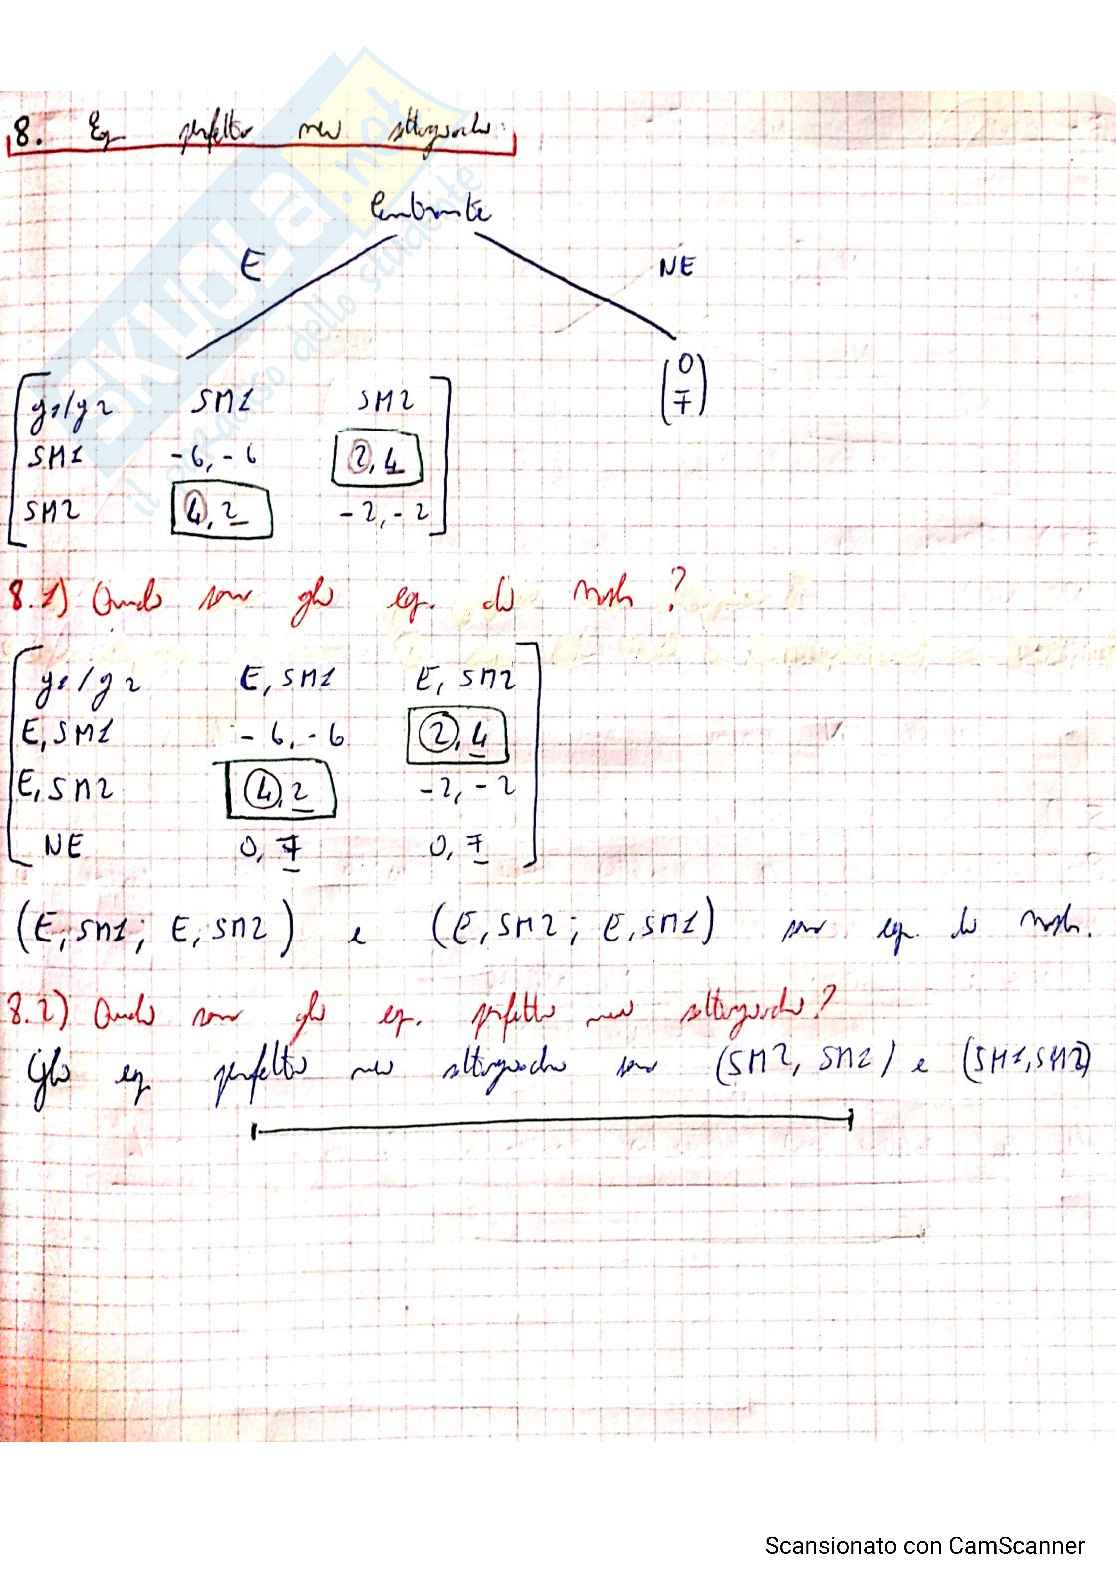 8. Eq perfetto nei sottogiochi
Entrante
E NE
g1/g2 SM1 SM2
SM1 -6,-6 2,4
SM2 4,2 -2,-2
0
7
8.1) Quali sono gli eq. di Nash?
g1/g2 E, SM1 E, SM2
E, SM1 -6,-6 2,4
E, SM2 4,2 -2,-2
NE 0,7 0,7
(E, SM1; E, SM2) e (E, SM2; E, SM1) sono eq. di Nash.
8.2) Quali sono gli eq. perfetti nei sottogiochi?
Gli eq perfetti nei sottogiochi sono (SM2, SM1) e (SM1, SM2)
SKUOLA.net
il paradiso dello studente
Scansionato con CamScanner